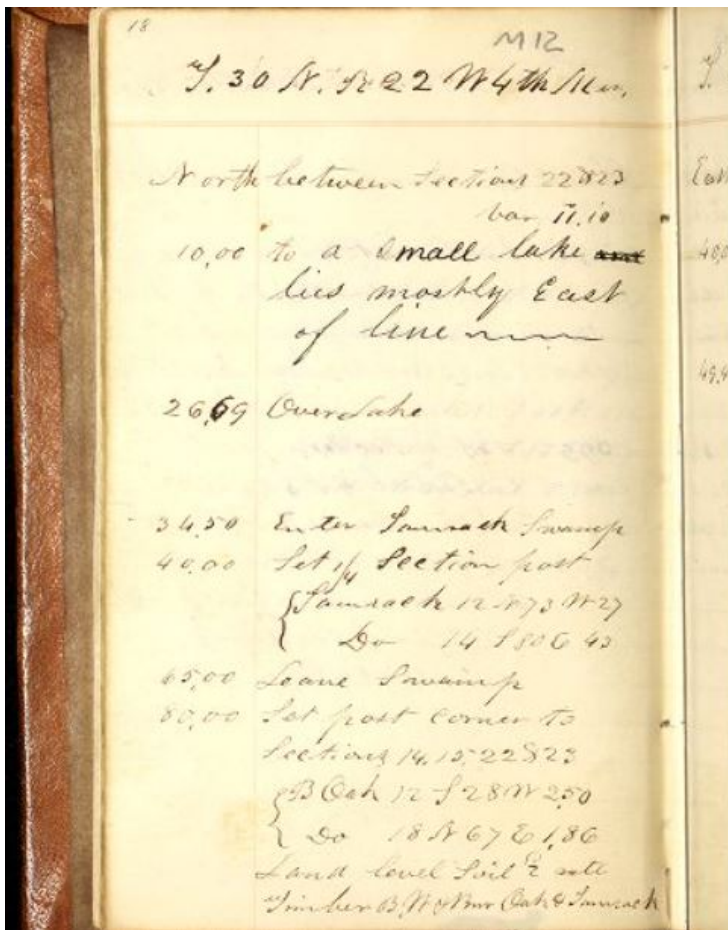 18
M12
T. 30 N. R 22 W 4th Mer.
North between Sections 22 & 23
Var 11.10
10,00 to a small lake
lies mostly East
of line
26,69 Over Lake
34,50 Enter Tamrack Swamp
40,00 Set 1/4 Section post
Tamrack 12 N 73 W 27
Do 14 S 80 E 43
65,00 Leave Swamp
80,00 Set post corner to
Sections 14, 15, 22 & 23
B Oak 12 S 28 W 2,50
Do 18 N 67 E 1,86
Land level Soil 2 rate
Timber B, W & Bur Oak & Tamrack
T.
East
40,0
49,4